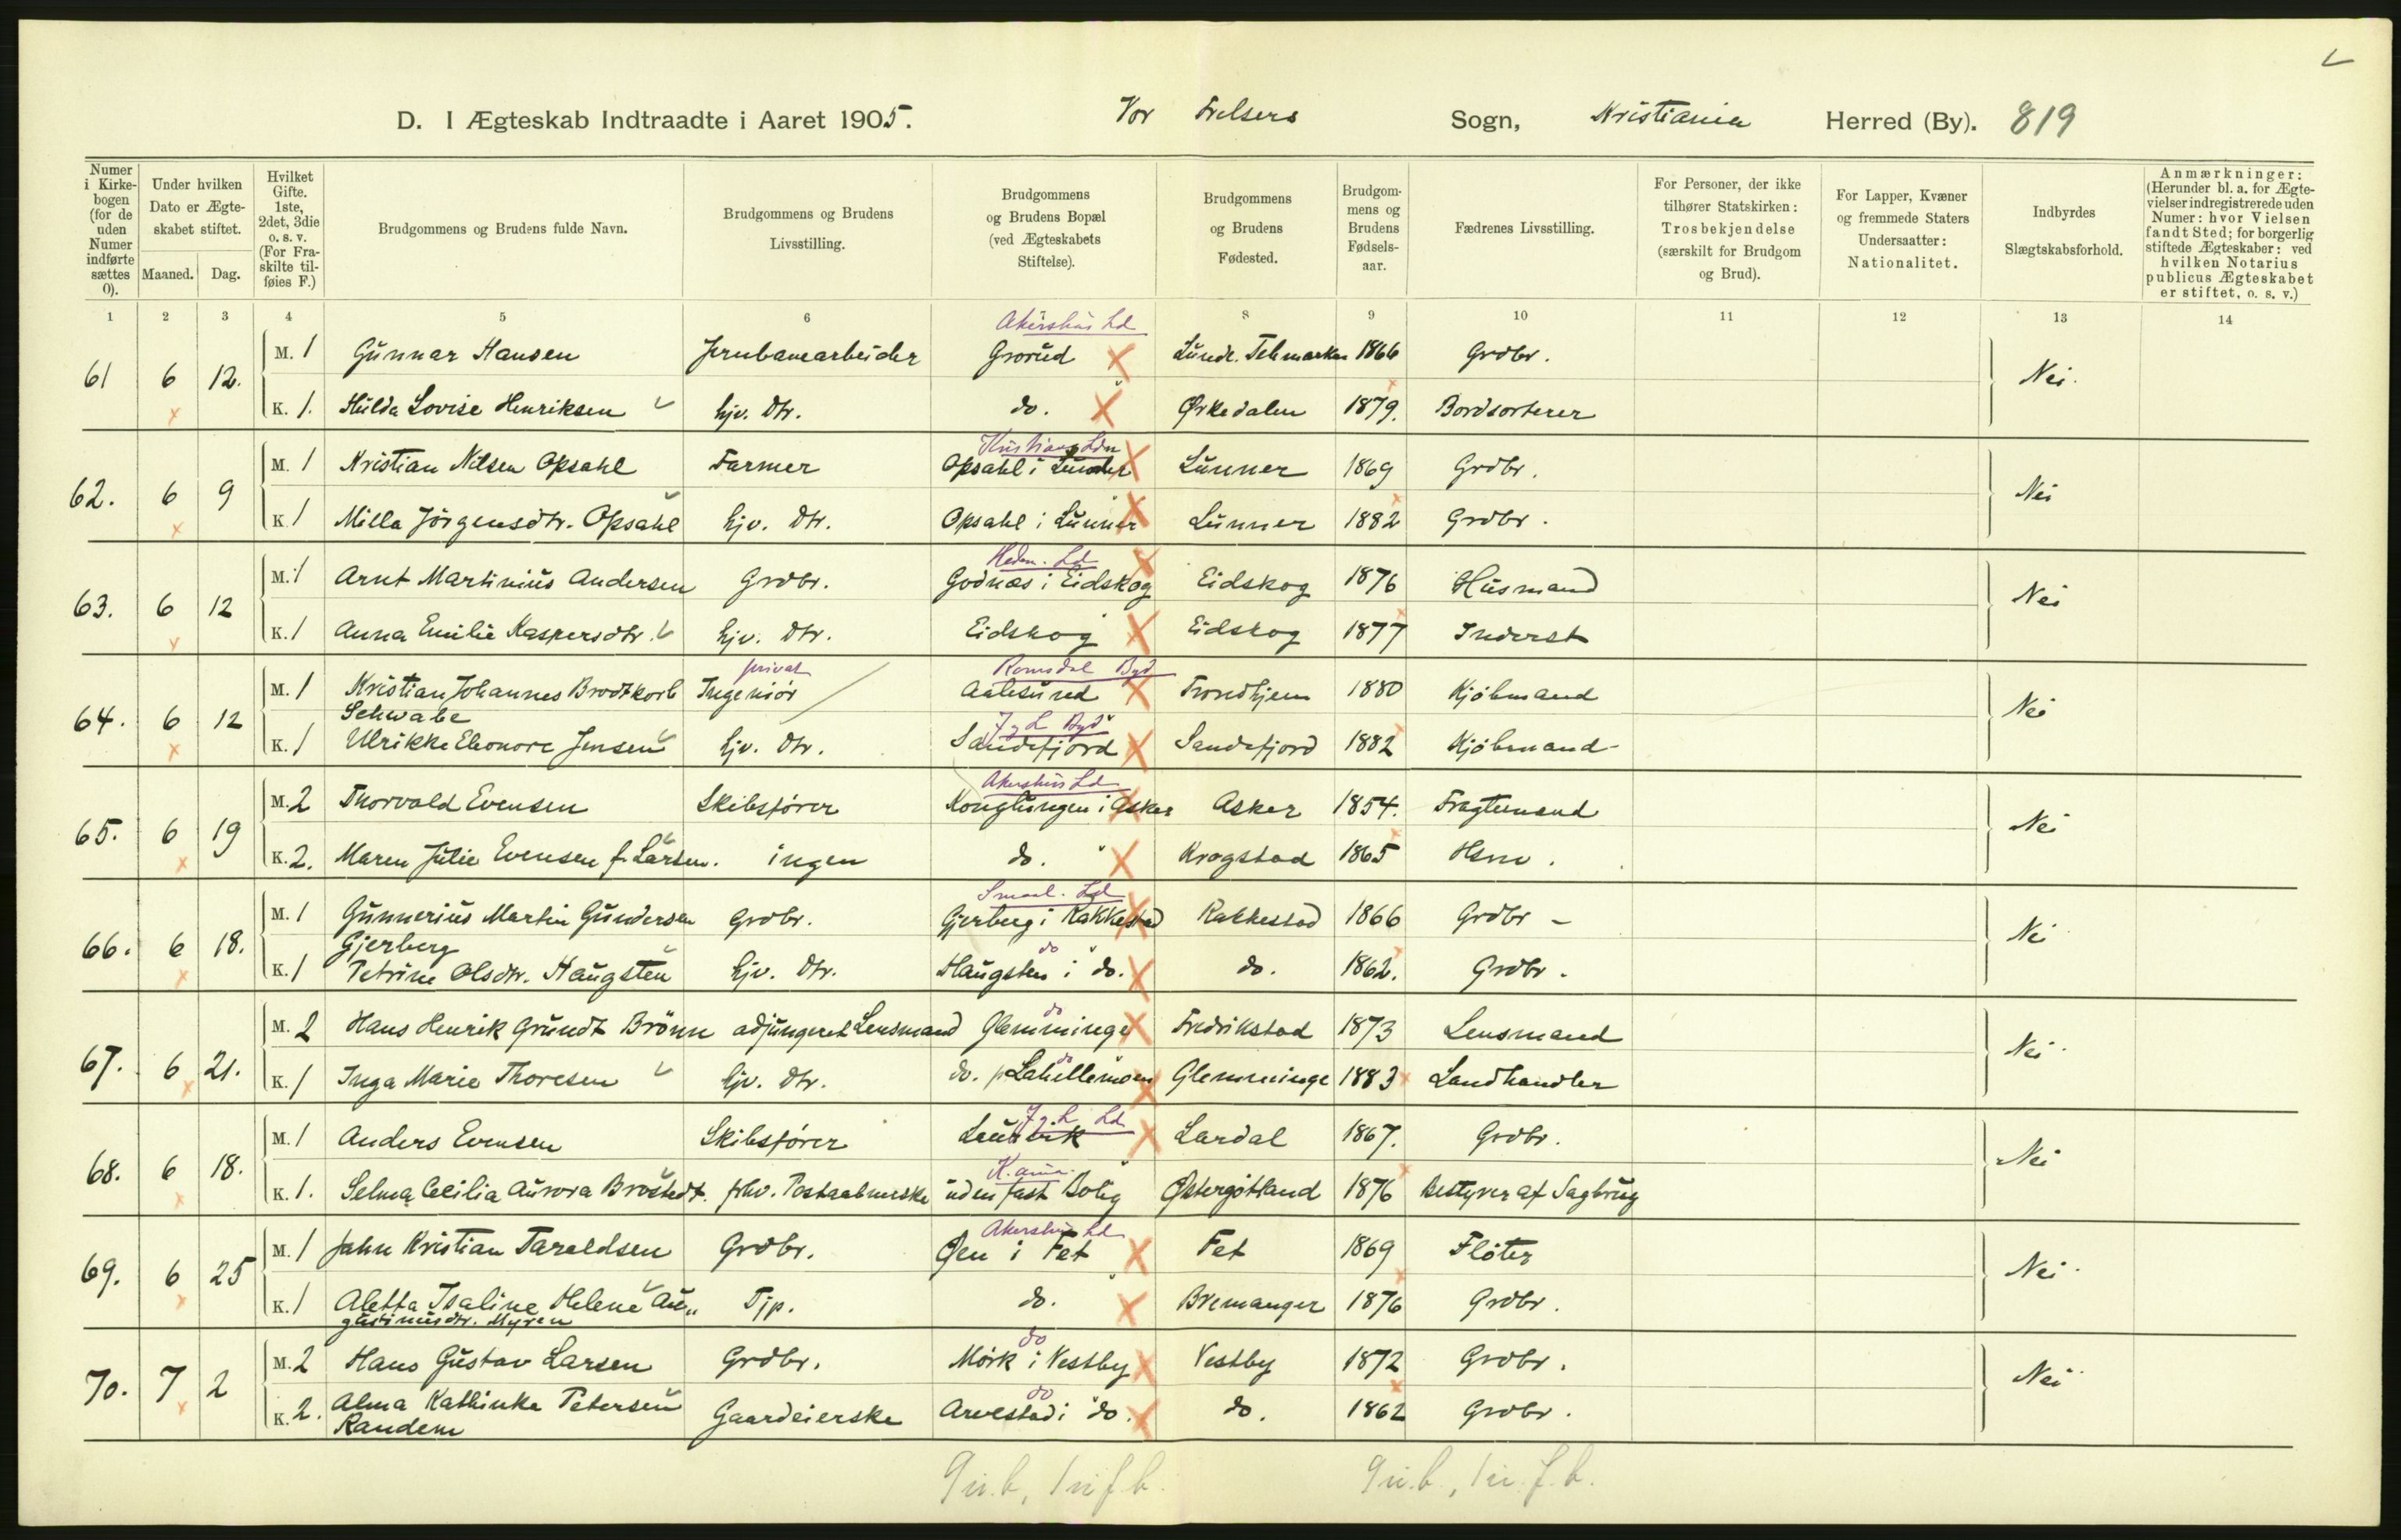 D. I Ægteskab Indtraadte i Aaret 1905. Vor Frelsers Sogn, Kristiania Herred (By). 819
Numer i Kirkebogen (for de uden Numer indførte sættes 0).
Under hvilken Dato er Ægteskabet stiftet.
Maaned. Dag.
Hvilket Gifte. 1ste, 2det, 3die o. s. v. (For Fraskilte tilføies F.)
Brudgommens og Brudens fulde Navn.
Brudgommens og Brudens Livsstilling.
Brudgommens og Brudens Bopæl (ved Ægteskabets Stiftelse).
Brudgommens og Brudens Fødested.
Brudgommens og Brudens Fødselsaar.
Fædrenes Livsstilling.
For Personer, der ikke tilhører Statskirken: Trosbekjendelse (særskilt for Brudgom og Brud).
For Lapper, Kvæner og fremmede Staters Undersaatter: Nationalitet.
Indbyrdes Slægtskabsforhold.
Anmærkninger: (Herunder bl. a. for Ægtevielser indregistrerede uden Numer: hvor Vielsen fandt Sted; for borgerlig stiftede Ægteskaber: ved hvilken Notarius publicus Ægteskabet er stiftet, o. s. v.)
1 2 3 4 5 6 7 8 9 10 11 12 13 14
Akershus Ld
61 6 12. M. 1 Gunnar Hansen Jernbanearbeider Grorud Lunde. Telemarken 1866 Grdbr. Nei.
K. 1. Hulda Lovise Henriksen hjv. Dtr. do. Ørkedalen 1879. Bordsorterer
Kristians Ldn
62. 6 9 M. 1 Kristian Nilsen Opsahl Farmer Opsahl i Lunner Lunner 1869 Grdbr. Nei
K. 1 Milla Jörgensdtr. Opsahl hjv. Dtr. Opsahl i Lunner Lunner 1882 Grdbr.
Hedm. Ld
63. 6 12 M. 1 Arnt Martinius Andersen Grdbr. Godnæs i Eidskog Eidskog 1876 Husmand Nei
K. 1 Anna Emilie Kaspersdtr. hjv. Dtr. Eidskog Eidskog 1877 Inderst
privat Romsdal Byd
64. 6 12 M. 1 Kristian Johannes Brodtkorb Schwabe Ingeniör Aalesund Trondhjem 1880 Kjöbmand Nei
J & L Byd
K. 1 Ulrikke Eleonore Jensen hjv. Dtr. Sandefjord Sandefjord 1882 Kjöbmand
Akershus Ld
65. 6 19 M. 2 Thorvald Evensen Skibsfører Konglungen i Asker Asker 1854. Fragtemand Nei
K. 2. Maren Julie Evensen f. Larsen. ingen do. Krogstad 1865 Hsm.
Smaal. Ld
66. 6 18. M. 1 Gunnerius Martin Gundersen Gjerberg Grdbr. Gjerberg i Rakkestad Rakkestad 1866 Grdbr Nei
do
K. 1 Petrine Olsdtr. Haugsten hjv. Dtr. Haugsten i do. do. 1862. Grdbr.
do
67. 6 21. M. 2 Hans Henrik Grundt Brönn adjungeret Lensmand Glemminge Fredrikstad 1873 Lensmand Nei
do
K. 1 Inga Marie Thoresen hjv. Dtr. do. p Lahellemoen Glemminge 1883 Landhandler
J & L Ld
68. 6 18. M. 1 Anders Evensen Skibsfører Laurvik Lardal 1867. Grdbr. Nei
K. ania.
K. 1. Selma Cecilia Aurora Broštedt. fhv. Postaabnerske uden fast Bolig Østergötland 1876 Bestyrer af Sagbrug
Akershus Ld
69. 6 25 M. 1 John Kristian Taraldsen Grdbr. Øen i Fet Fet 1869 Flöter Nei
K. 1 Aletta Isaline Helene Augustinusdtr. Myren Tjp. do. Bremanger 1876 Grdbr.
do
70. 7 2 M. 2 Hans Gustav Larsen Grdbr. Mörk i Vestby Vestby 1872 Grdbr. Nei
do
K. 2. Alma Kathinka Petersen Randem Gaardeierske Arvestad i do. do. 1862 Grdbr.
9 u.b., 1 u.f.b. 9 u.b., 1 u.f.b.